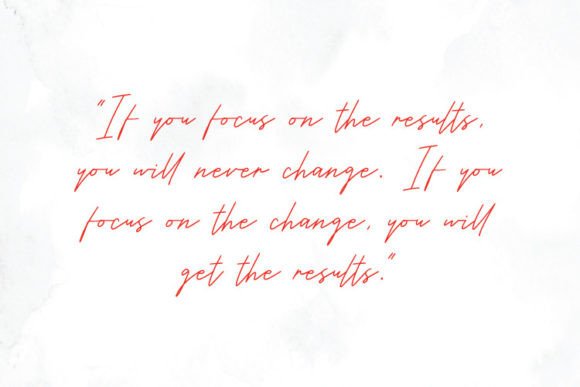 "If you focus on the results,
you will never change. If you
focus on the change, you will
get the results."